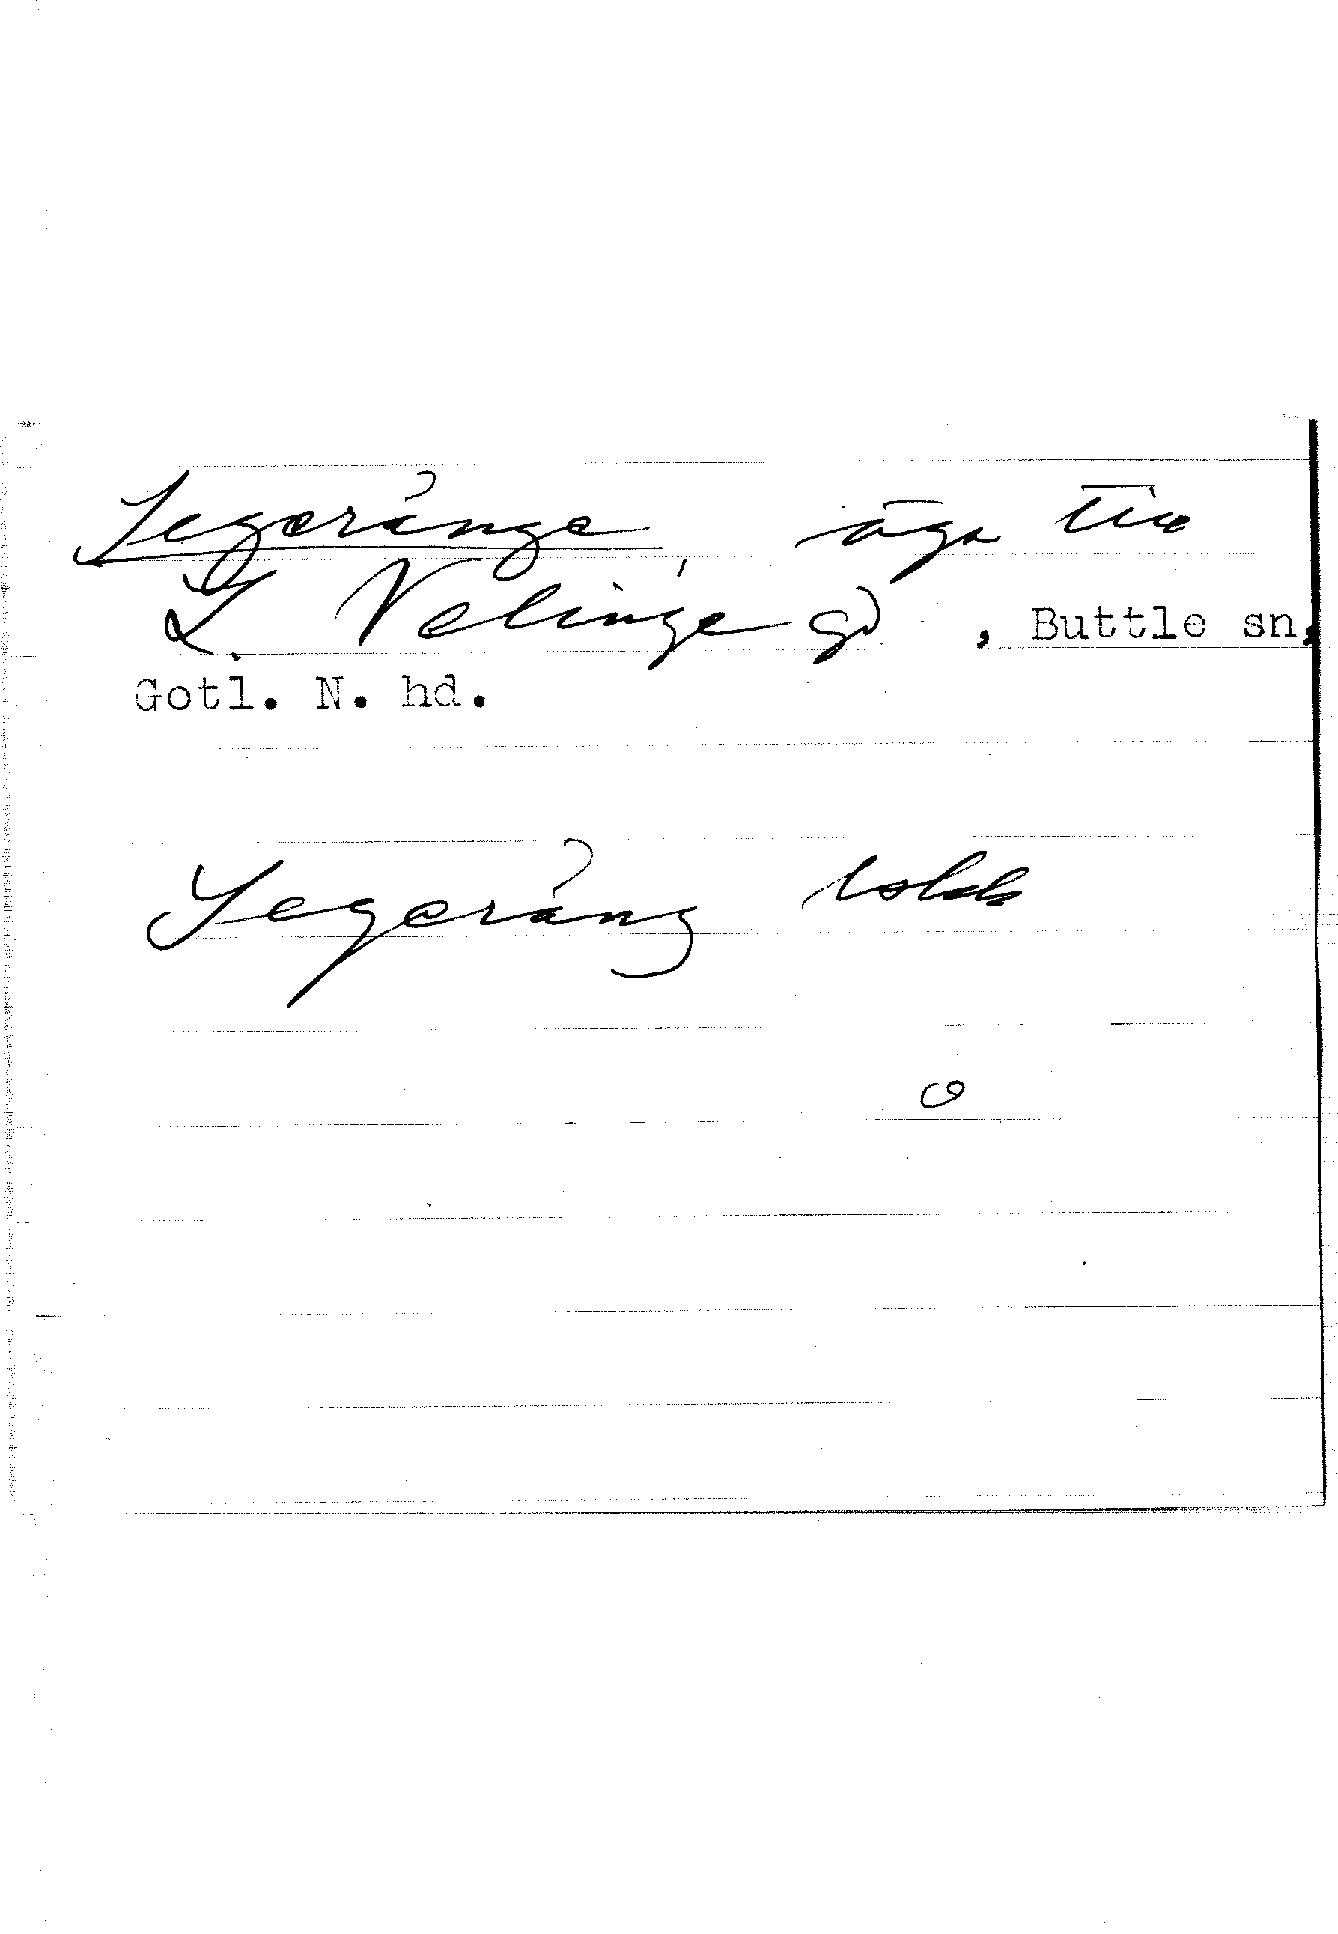 Segerånge äga till
L. Velinge gd , Buttle sn,
Gotl. N. hd.
Segeräng